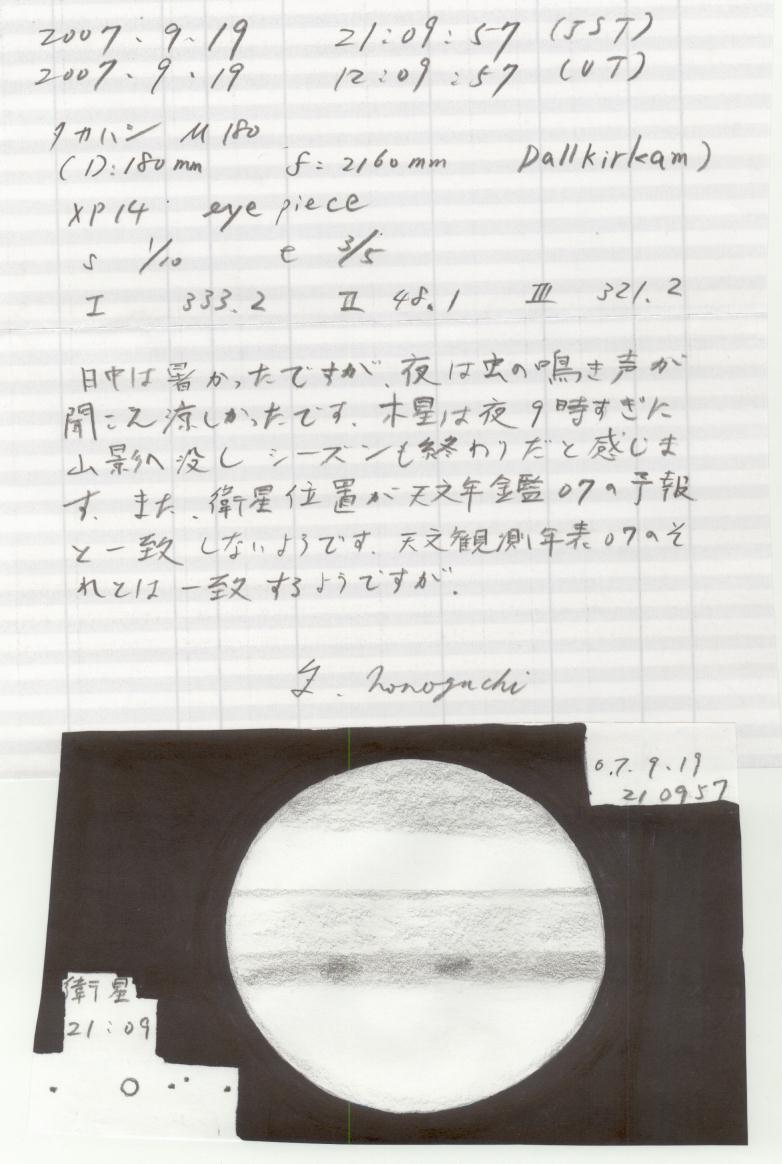 2007.9.19 21:09:57 (JST)
2007.9.19 12:09:57 (UT)
タカハシ M180
(D:180mm f=2160mm Dallkirkam)
XP14 eye piece
s 1/10 e 3/5
I 333.2 II 48.1 III 321.2
日中は暑かったですが、夜は虫の鳴き声が
聞こえ涼しかったです。木星は夜9時すぎに
山影へ没しシーズンも終わりだと感じま
す。また、衛星位置が天文年鑑07の予報
と一致しないようです。天文観測年表07のそ
れとは一致するようですが。
07.9.19
210957
衛星
21:09